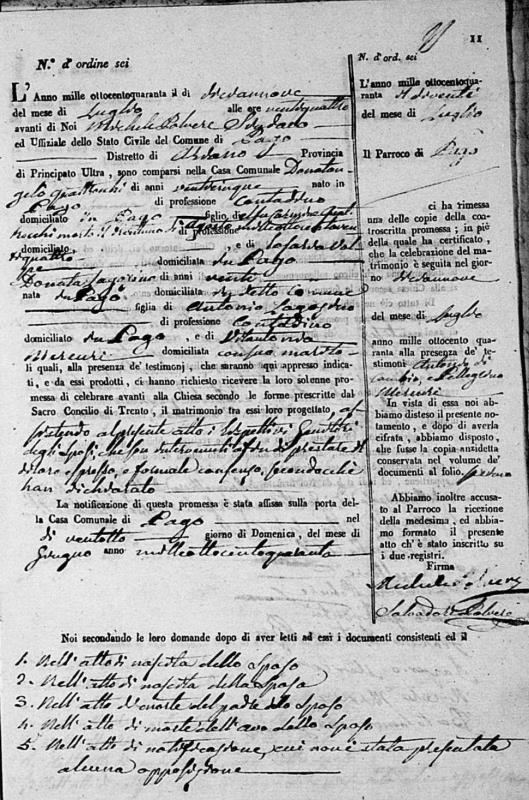 11
N.° d'ordine sei
L'Anno mille ottocentoquaranta il di diciannove
del mese di Luglio alle ore ventiquattro
avanti di Noi Michele Polvere Sindaco
ed Uffiziale dello Stato Civile del Comune di Pago
Distretto di Ariano Provincia
di Principato Ultra, sono comparsi nella Casa Comunale Donatan
gelo di anni venticinque nato in
Pago di professione Contadino
domiciliato in Pago figlio di
morto il
professione
domiciliato e di
quattro domiciliata in Pago
Donata di anni venti
nata in Pago domiciliata in detto Comune
figlia di Antonio
di professione Contadino
domiciliato in Pago, e di Vitantonia
Mercuri domiciliata con suo marito
li quali, alla presenza de' testimonj, che saranno quì appresso indica-
ti, e da essi prodotti, ci hanno richiesto ricevere la loro solenne pro-
messa di celebrare avanti alla Chiesa secondo le forme prescritte dal
Sacro Concilio di Trento, il matrimonio tra essi loro progettato, as
sistendo al presente atto i rispettivi Genitori
degli Sposi, che son intervenuti affin di prestare il
di loro espresso, e formale consenso, secondocchè
han dichiarato
La notificazione di questa promessa è stata affissa sulla porta del-
la Casa Comunale di Pago nel
dì ventotto giorno di Domenica, del mese di
Giugno anno milleottocentoquaranta
N. d'ord. sei
L'anno mille ottocentoqua-
ranta il di venti
del mese di Luglio
Il Parroco di Pago
ci ha rimessa
una delle copie della con-
troscritta promessa; in piè
della quale ha certificato,
che la celebrazione del ma-
trimonio è seguita nel gior-
no diciannove
del mese di Luglio
anno mille ottocento qua-
ranta alla presenza de' te-
stimoni Antonio di
e Pellegrino
Mercuri
In vista di essa noi ab-
biamo disteso il presente no-
tamento, e dopo di averla
cifrata, abbiamo disposto,
che fusse la copia anzidetta
conservata nel volume de'
documenti al folio
Abbiamo inoltre accusa-
to al Parroco la ricezione
della medesima, ed abbia-
mo formato il presente
atto ch'è stato inscritto su
i due registri.
Firma
Michele Polvere
Salvadore Polvere
Noi secondando le loro domande dopo di aver letti ad essi i documenti consistenti ed il
1. Nell'atto di nascita dello Sposo
2. Nell'atto di nascita della Sposa
3. Nell'atto di morte del padre dello Sposo
4. Nell'atto di morte dell'avo dello Sposo
5. Nell'atto di notificazione, cui non è stata presentata
alcuna opposizione